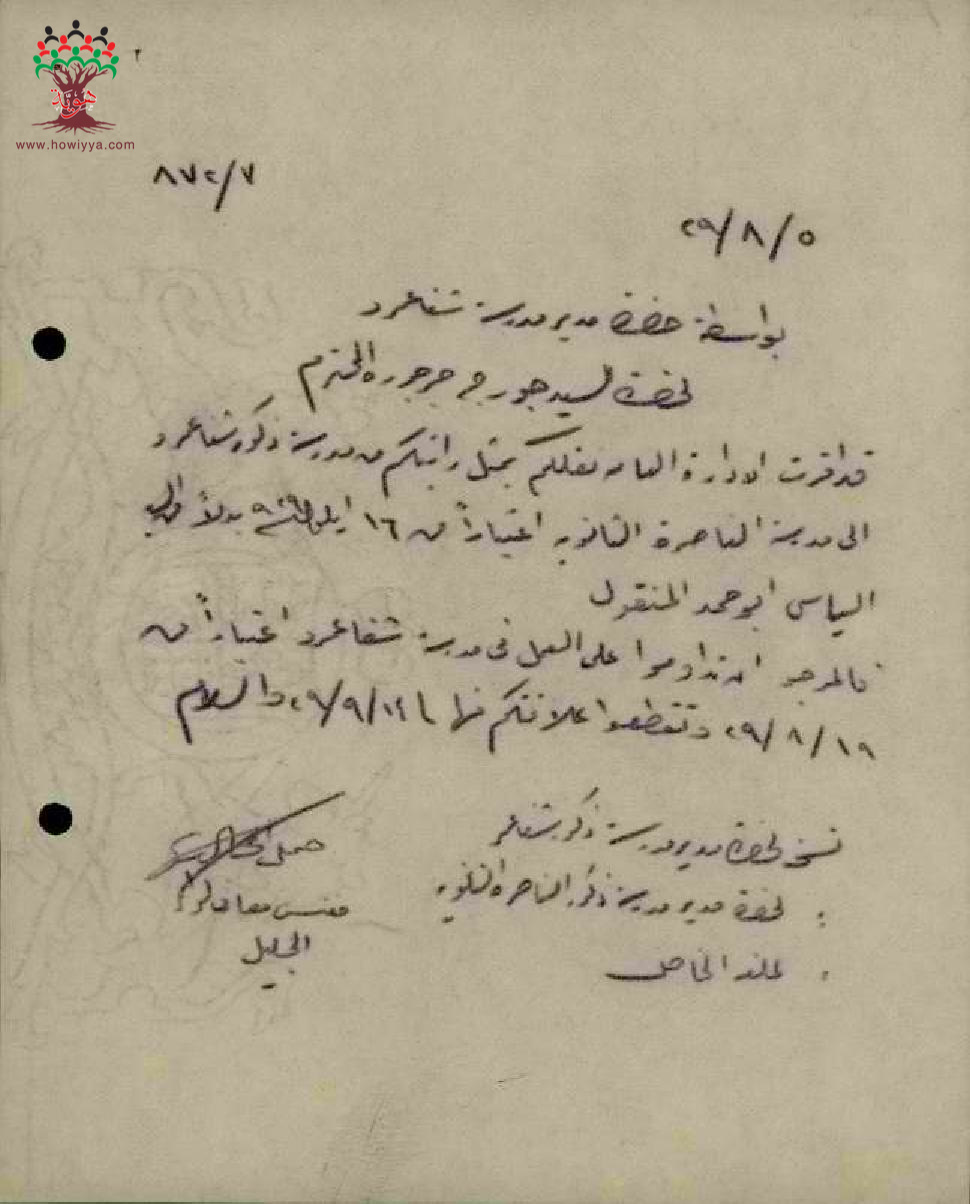 هوية
www.howiyya.com
٢
٨٧٢/٧
٢٩/٨/٥
بواسطة حضرة مدير مدرسة شفاعمرو
لحضرة السيد جورج جرجوره المحترم
قد اقرت الادارة العامه نقلكم بمثل راتبكم من مدرسة ذكور شفاعمرو
الى مدرسة الناصرة الثانويه اعتباراً من ١٦ ايلول بدلاً من
الياس ابو حمد المنقول
فالمرجو ان تداوموا على العمل في مدرسة شفاعمرو اعتباراً من
٢٩/٨/١٩ وتقطعوا علاقتكم منها والسلام
نسخ لحضرة مدير مدرسة ذكور شفاعمرو
: لحضرة مدير مدرسة ذكور الناصرة الثانويه
: الخاص
مفتش معارف لواء
الجليل